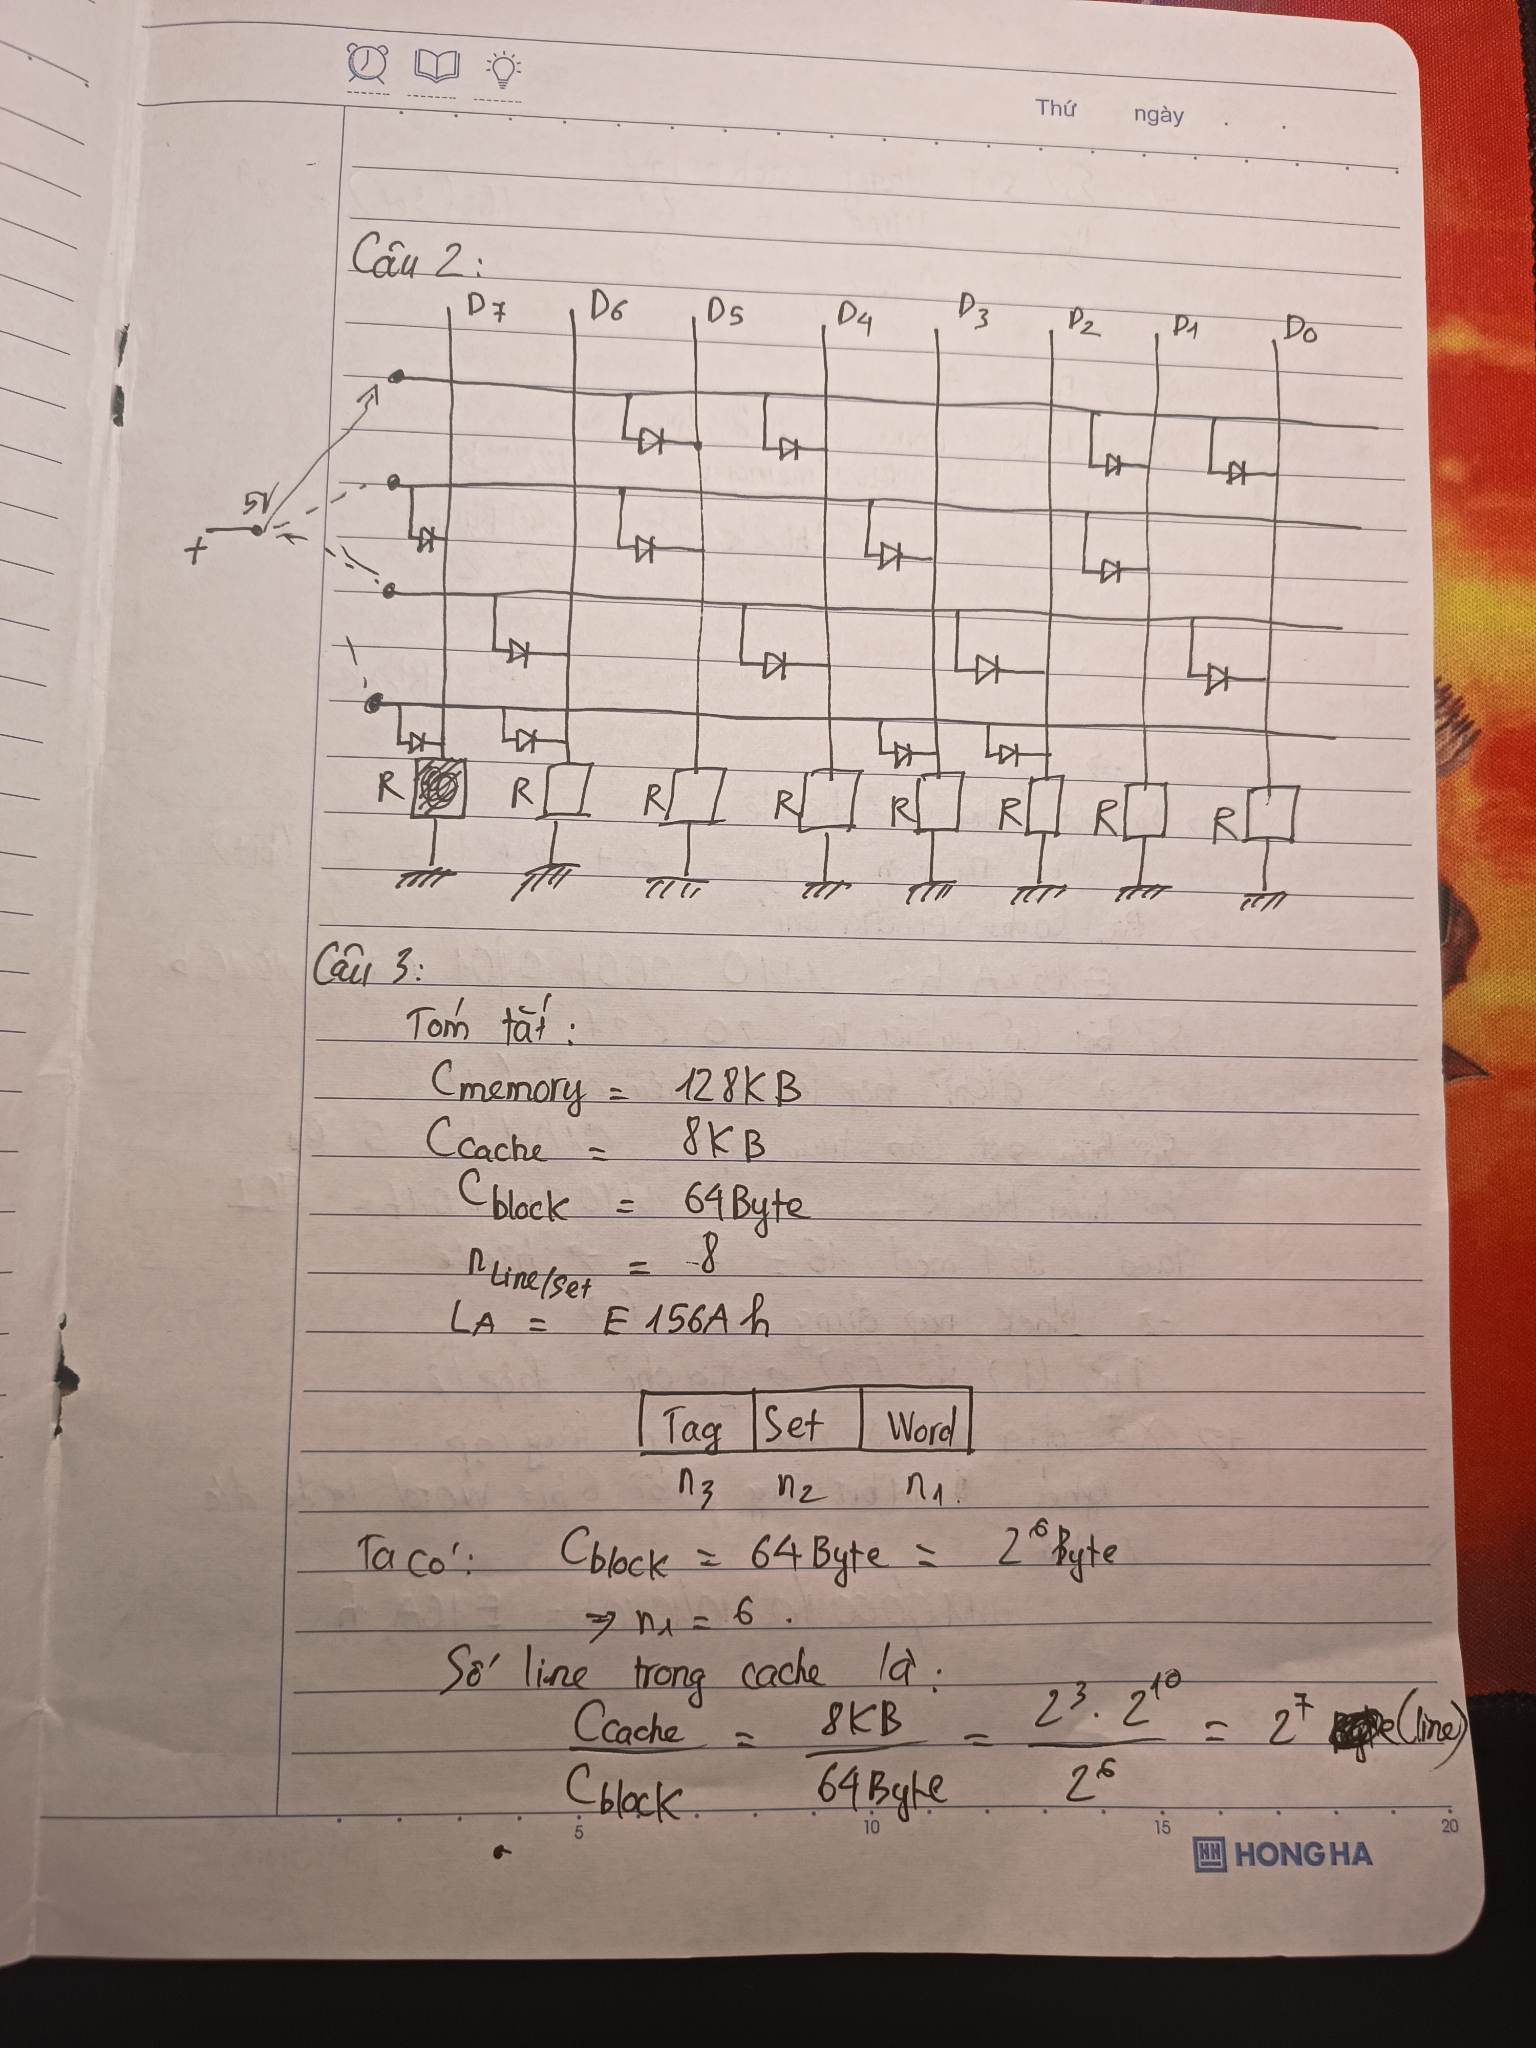 Thứ ngày
Câu 2:
D7 D6 D5 D4 D3 D2 D1 D0
5V
+
R R R R R R R R
Câu 3:
Tóm tắt:
Cmemory = 128KB
Ccache = 8KB
Cblock = 64Byte
nLine/Set = 8
LA = E156Ah
Tag Set Word
n3 n2 n1.
Ta có: Cblock = 64Byte = 2^6 Byte
⇒ n1 = 6.
Số line trong cache là:
Ccache/Cblock = 8KB/64Byte = 2^3 . 2^10/2^6 = 2^7 (line)
5 10 15 20
HH HONG HA